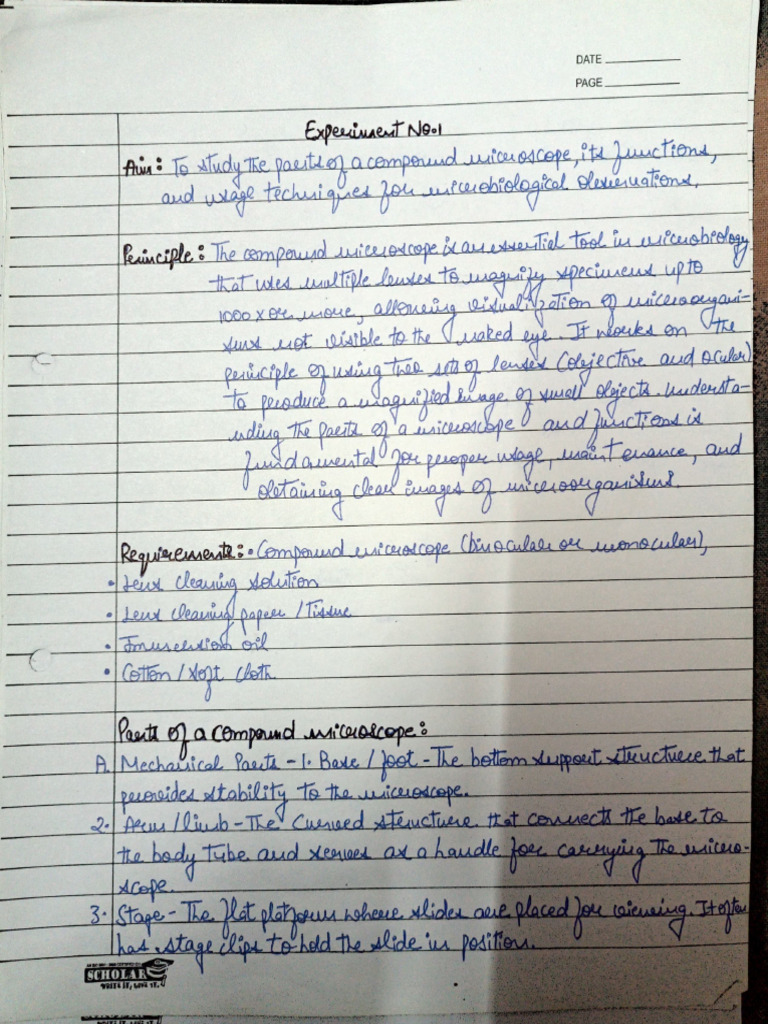 DATE
PAGE
Experiment No.1
Aim: To study the parts of a compound microscope, its functions,
and usage techniques for microbiological observations.
Principle: The compound microscope is an essential tool in microbiology
that uses multiple lenses to magnify specimens up to
1000x or more, allowing visualization of microorgani-
sms not visible to the naked eye. It works on the
principle of using two sets of lenses (objective and ocular)
to produce a magnified image of small objects. Understa-
nding the parts of a microscope and functions is
fundamental for proper usage, maintenance, and
obtaining clear images of microorganisms.
Requirements: • Compound microscope (binocular or monocular),
• Lens cleaning solution
• Lens cleaning paper / Tissue
• Immersion oil
• Cotton / soft cloth
Parts of a compound microscope:
A. Mechanical Parts - 1. Base / foot - The bottom support structure that
provides stability to the microscope.
2. Arm / limb - The Curved structure that connects the base to
the body tube and serves as a handle for carrying the micro-
scope.
3. Stage - The flat platform where slides are placed for viewing. It often
has stage clips to hold the slide in position.
SCHOLAR
WRITE IT, LOVE IT.